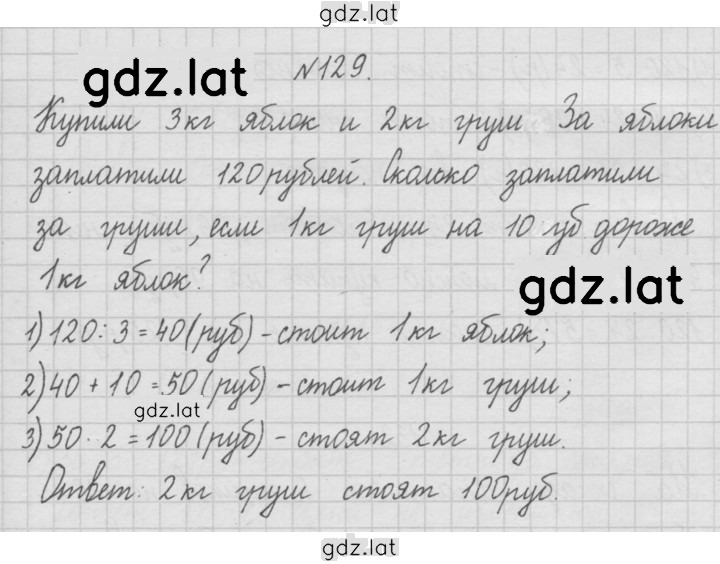 gdz.lat
gdz.lat
№129.
Купили 3кг яблок и 2кг груш За яблоки
заплатили 120рублей. Сколько заплатили
за груши, если 1кг груш на 10 руб дороже
1кг яблок?
gdz.lat
1) 120:3=40(руб)-стоит 1кг яблок;
2) 40+10=50(руб)-стоит 1кг груш;
gdz.lat
3) 50·2=100(руб)-стоят 2кг груш.
Ответ: 2кг груш стоят 100руб.
gdz.lat